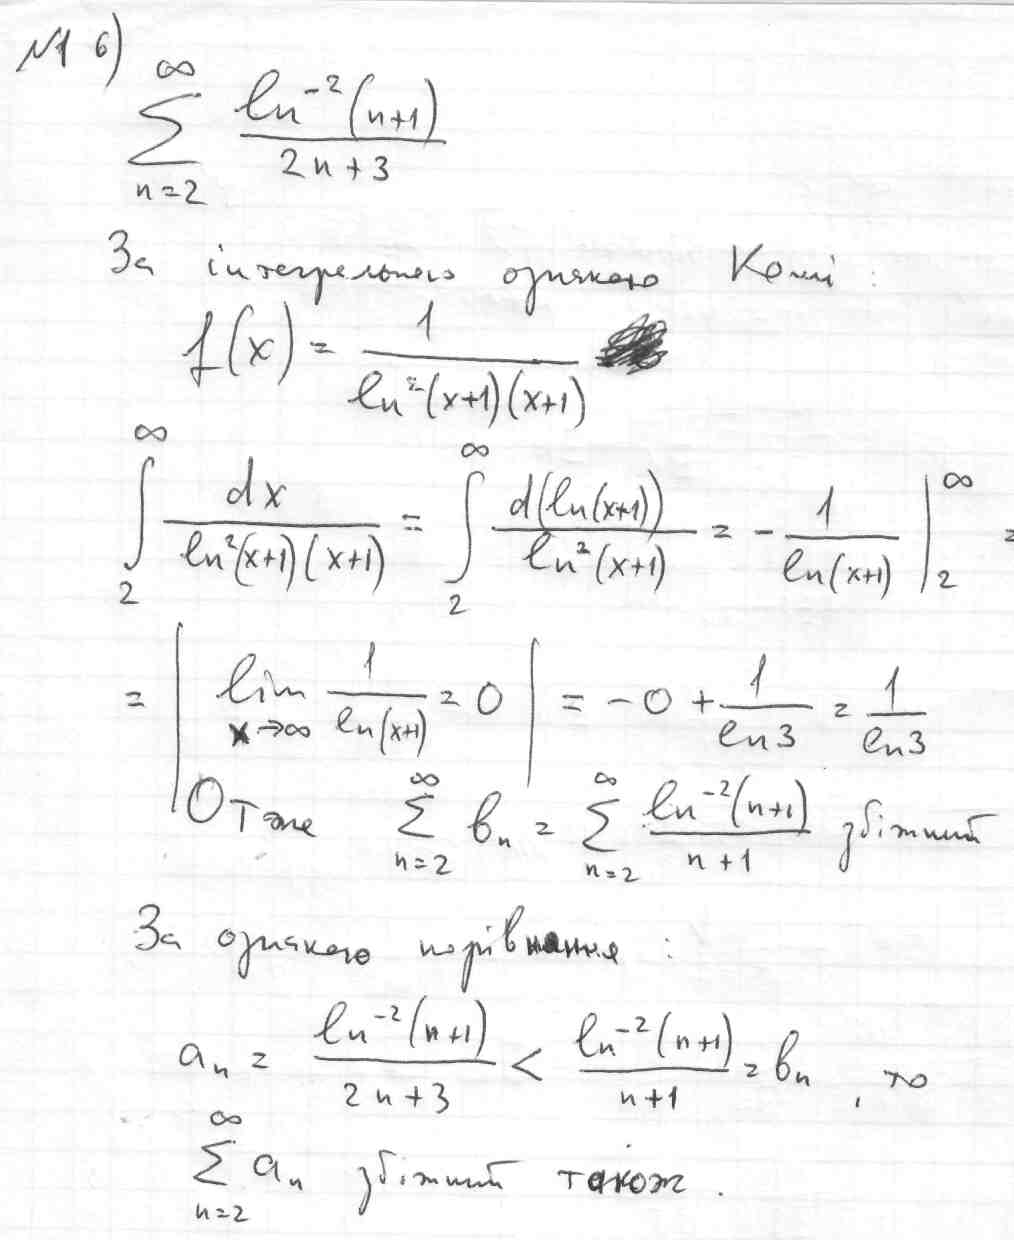 №1 б)
∑_{n=2}^{∞} ln⁻²(n+1) / (2n+3)
За інтегрального ознакою Коші :
f(x) = 1 / (ln²(x+1)(x+1))
∫_2^∞ dx / (ln²(x+1)(x+1)) = ∫_2^∞ d(ln(x+1)) / ln²(x+1) = - 1 / ln(x+1) |_2^∞ =
= | lim_{x→∞} 1 / ln(x+1) = 0 | = -0 + 1 / ln3 = 1 / ln3
Отже ∑_{n=2}^{∞} bₙ = ∑_{n=2}^{∞} ln⁻²(n+1) / (n+1) збіжний
За ознакою порівняння :
aₙ = ln⁻²(n+1) / (2n+3) < ln⁻²(n+1) / (n+1) = bₙ , то
∑_{n=2}^{∞} aₙ збіжний також .